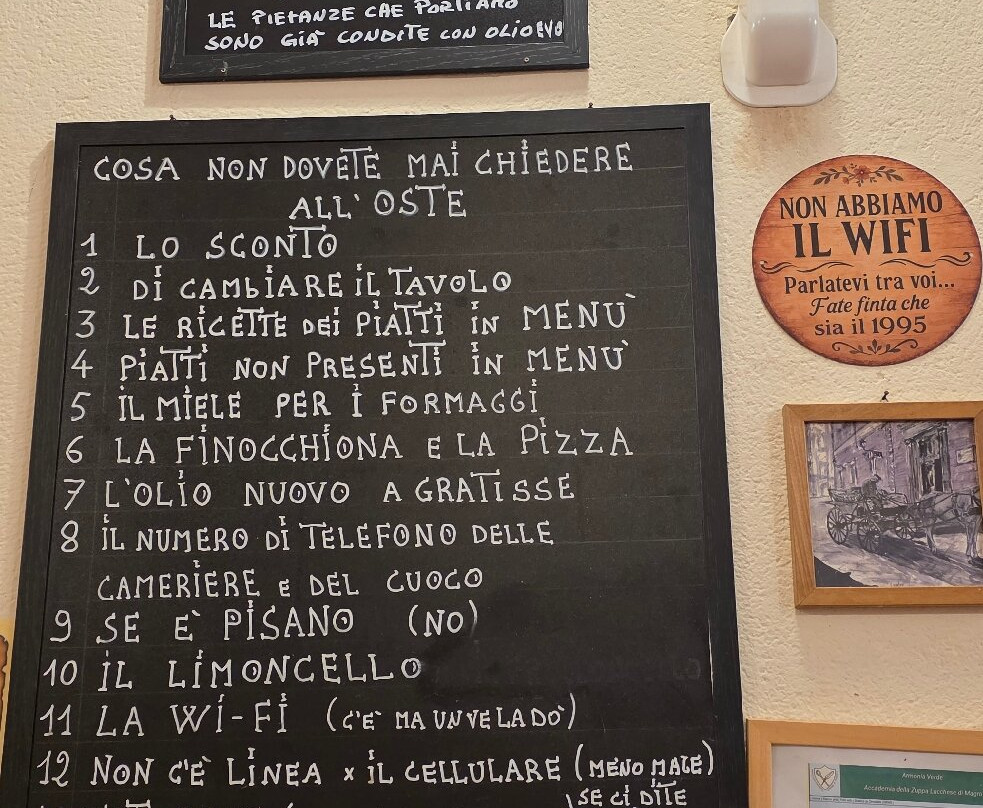 LE PIETANZE CHE PORTIAMO
SONO GIÀ CONDITE CON OLIO EVO
COSA NON DOVETE MAI CHIEDERE
ALL'OSTE
1 LO SCONTO
2 DI CAMBIARE IL TAVOLO
3 LE RICETTE DEI PIATTI IN MENÙ
4 PIATTI NON PRESENTI IN MENÙ
5 IL MIELE PER I FORMAGGI
6 LA FINOCCHIONA E LA PIZZA
7 L'OLIO NUOVO A GRATISSE
8 IL NUMERO DI TELEFONO DELLE
CAMERIERE E DEL CUOCO
9 SE È PISANO (NO)
10 IL LIMONCELLO
11 LA WI-FI (C'È MA UN VE LA DÒ)
12 NON C'È LINEA x IL CELLULARE (MENO MALE)
SE CI DITE
NON ABBIAMO
IL WIFI
Parlatevi tra voi...
Fate finta che
sia il 1995
Armonia Verde
Accademia della Zuppa Lucchese di Magro